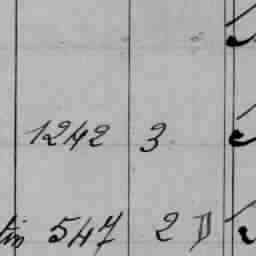 1242 3
tin 547 2 D